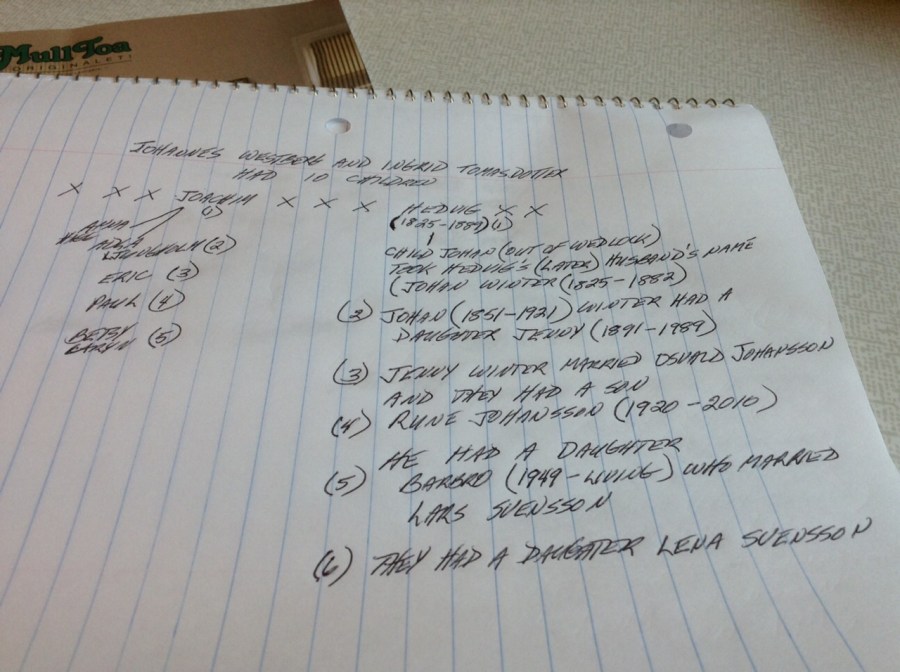 MullToa
ORIGINALET!
JOHANNES WESTBERG AND INGRID TOMASDOTTER
HAD 10 CHILDREN
X X X JOACHIM X X X HEDVIG X X
(1)
(1825-1889) (1)
ANNA
LJUNGHOLM (2)
ERIC (3)
PAUL (4)
BETSY (5)
CHILD JOHAN (OUT OF WEDLOCK)
TOOK HEDVIG'S (LATER) HUSBAND'S NAME
(JOHAN WINTER (1825-1882)
(2) JOHAN (1851-1921) WINTER HAD A
DAUGHTER JENNY (1891-1989)
(3) JENNY WINTER MARRIED OSVALD JOHANSSON
AND THEY HAD A SON
(4) RUNE JOHANSSON (1920-2010)
HE HAD A DAUGHTER
(5) BARBRO (1949-LIVING) WHO MARRIED
LARS SVENSSON
(6) THEY HAD A DAUGHTER LENA SVENSSON